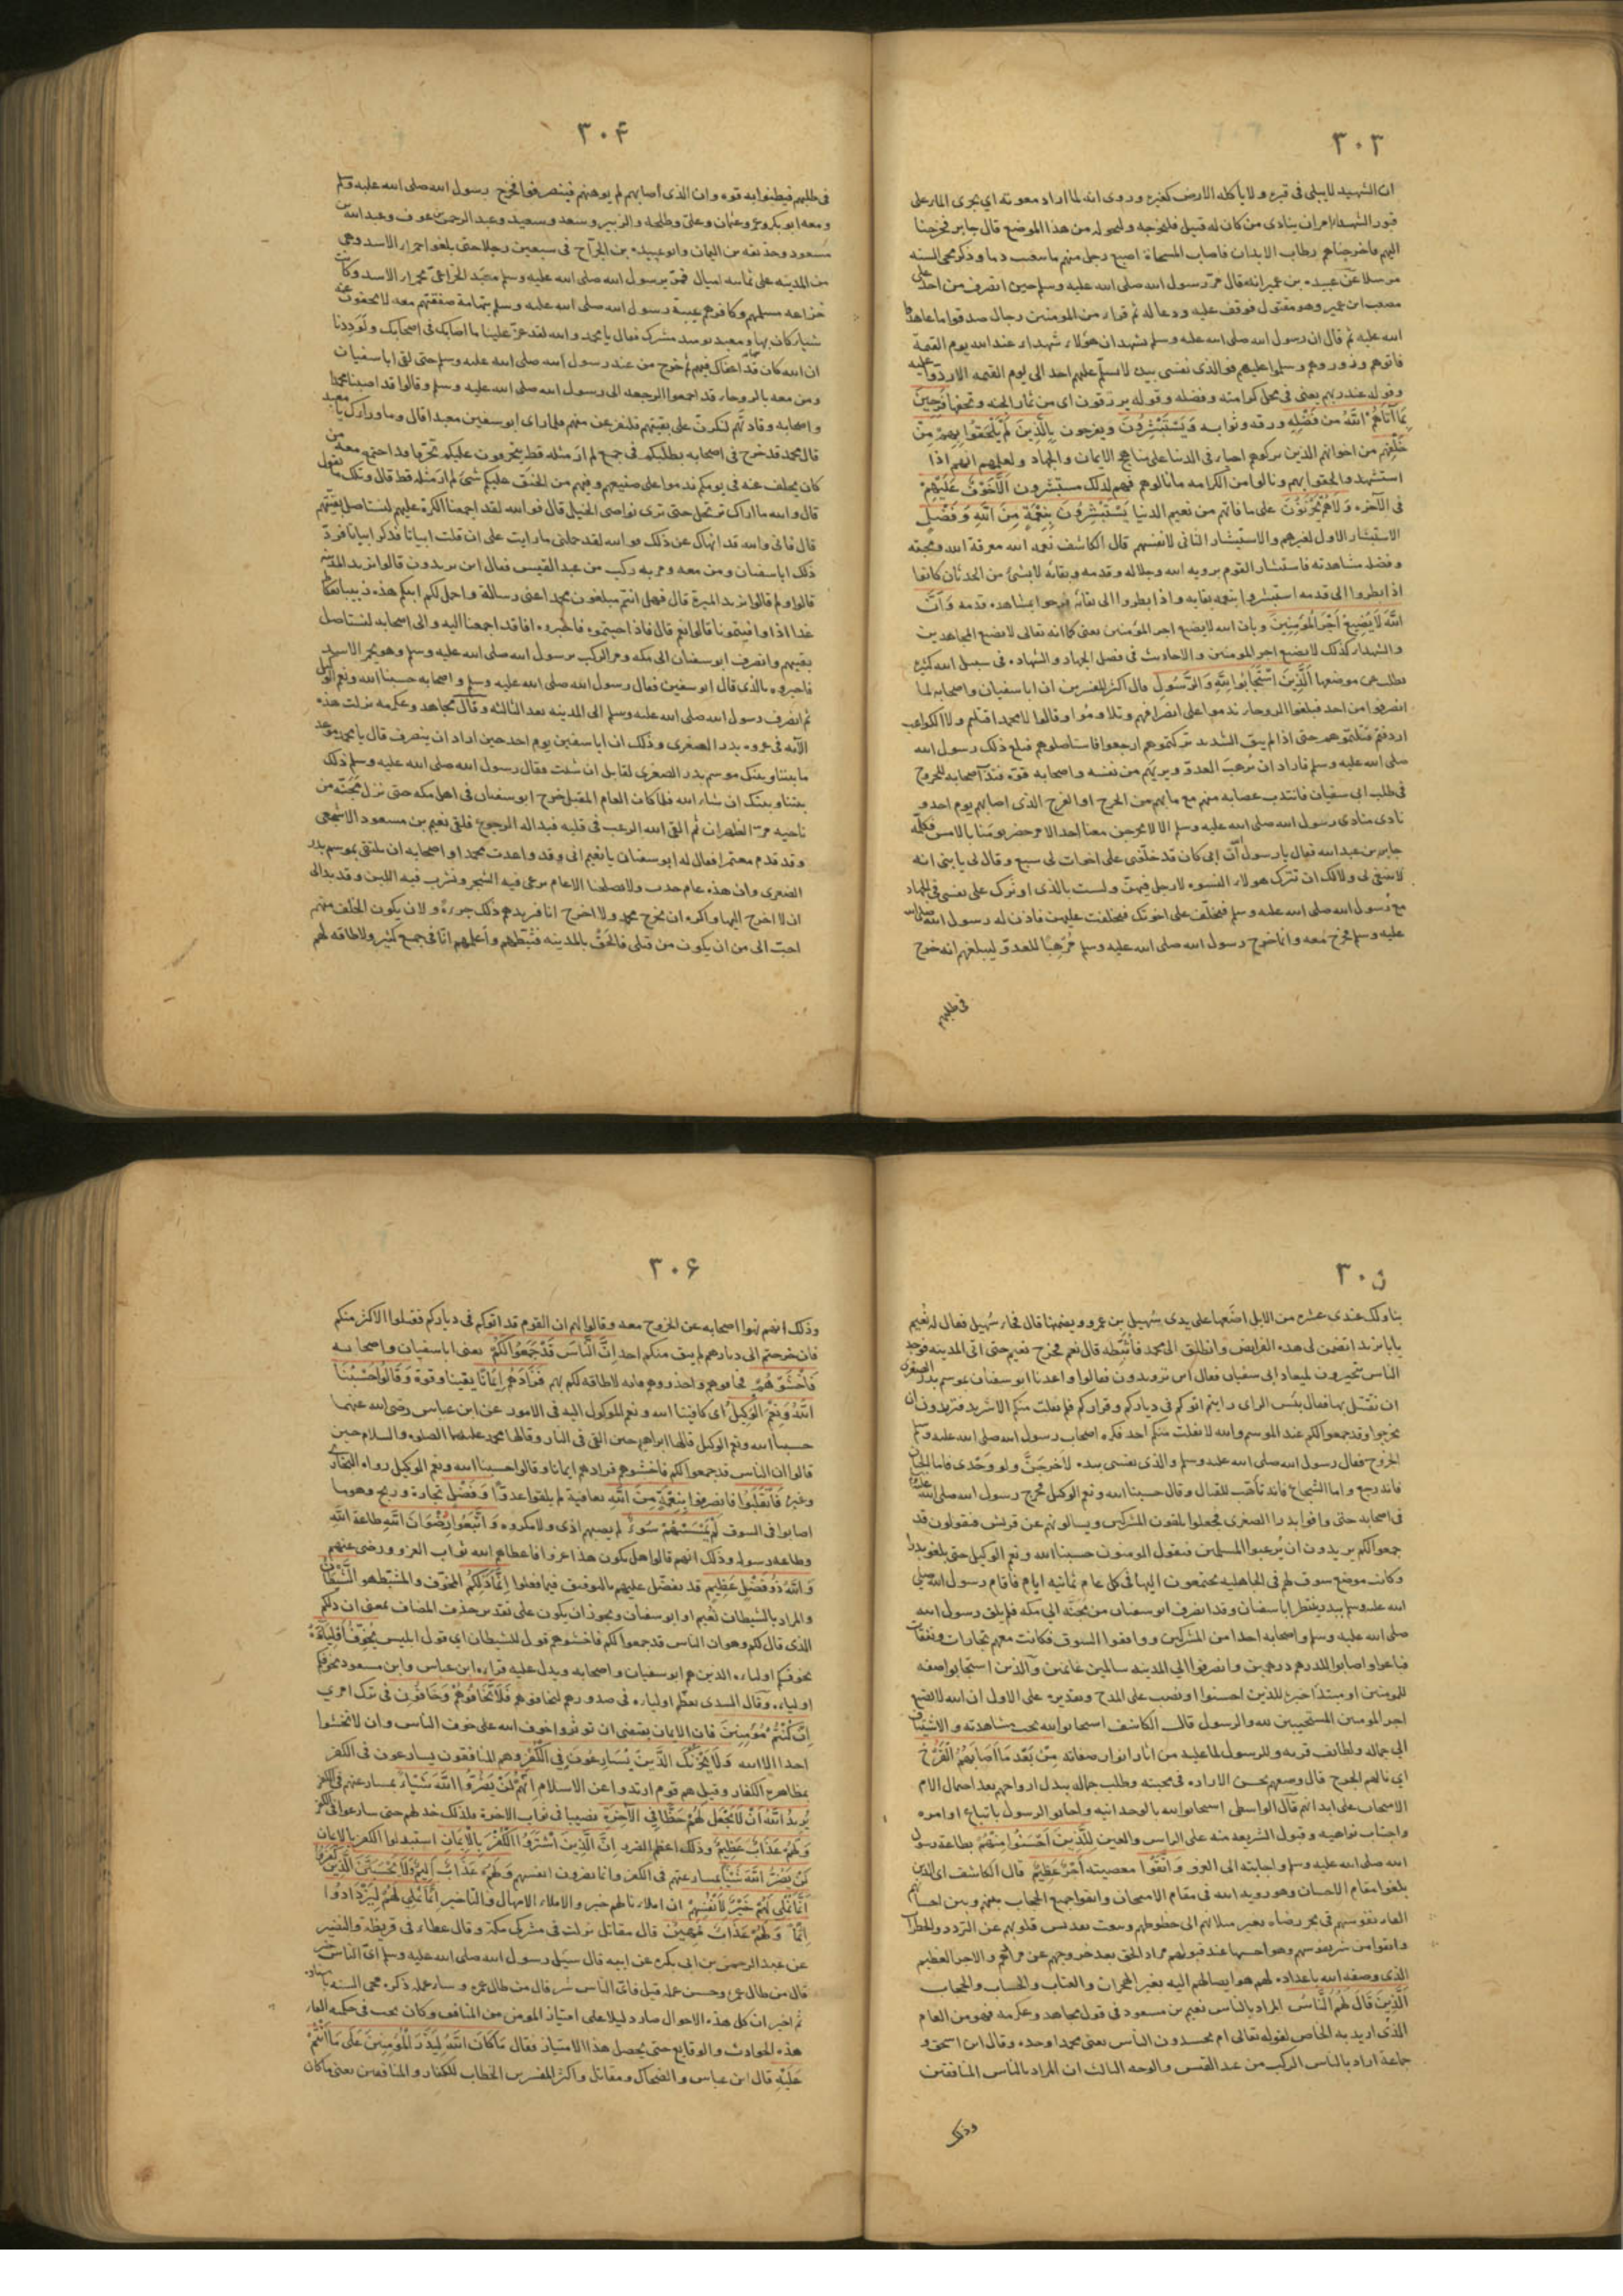 ٣٠٣
ان الشهيد لا يبلى فى قبره ولا يأكله الارض كغيره وروى انه لما اراد معوية اى يجرى الماء على
قبور الشهداء امر ان ينادى من كان له قتيل فليخرجه وليحوله من هذا الموضع قال جابر فخرجنا
اليهم فاخرجناهم رطاب الابدان فاصاب المسحاة اصبع رجل منهم فانبعث دما وذكر محى السنه
مرسلا عن عبيد بن عمير انه قال مرّ رسول الله صلى الله عليه وسلم حين انصرف من احد على
مصعب ابن عمير وهو مقتول فوقف عليه ودعا له ثم قرا من المومنين رجال صدقوا ما عاهدوا
الله عليه ثم قال ان رسول الله صلى الله عليه وسلم يشهد ان هؤلاء شهداء عند الله يوم القيمة
فاتوهم وزوروهم وسلموا عليهم فو الذى نفسى بيده لا يسلّم عليهم احد الى يوم القيمه الا ردّوا عليه
وقوله عند ربهم يعنى فى محل كرامته وفضله وقوله يرزقون اى من ثمار الجنه وتحفها فَرِحِينَ
بِمَا آتَاهُمُ اللَّهُ مِنْ فَضْلِهِ ورزقه وثوابه وَيَسْتَبْشِرُونَ ويفرحون بِالَّذِينَ لَمْ يَلْحَقُوا بِهِمْ مِنْ
خَلْفِهِمْ من اخوانهم الذين تركوهم احياء فى الدنيا على مناهج الايمان والجهاد ولعلمهم انهم اذا
استشهدوا لحقوا بهم ونالوا من الكرامه ما نالوهم فهم لذلك مستبشرون أَلَّا خَوْفٌ عَلَيْهِمْ
فى الآخره وَلَا هُمْ يَحْزَنُونَ على ما فاتهم من نعيم الدنيا يَسْتَبْشِرُونَ بِنِعْمَةٍ مِنَ اللَّهِ وَفَضْلٍ
الاستبشار الاول لغيرهم والاستبشار الثانى لانفسهم قال الكاشف نعمه الله معرفة الله ومحبته
وفضله مشاهدته فاستبشار القوم برويه الله وجلاله وقدمه وبقائه لا بشئ من الحدثان كانها
اذا نظروا الى قدمه استبشروا بنعوت بقايه واذا نظروا الى بقائه فرحوا بمشاهده قدمه وَأَنَّ
اللَّهَ لَا يُضِيعُ أَجْرَ الْمُؤْمِنِينَ وبان الله لا يضيع اجر المؤمنين يعنى كما انه تعالى لا يضيع المجاهدين
والشهداء كذلك لا يضيع اجر المومنين والاحاديث فى فضل الجهاد والشهاده فى سبيل الله كثيره
تطلب من موضعها الَّذِينَ اسْتَجَابُوا لِلَّهِ وَالرَّسُولِ قال اكثر المفسرين ان ابا سفيان واصحابه لما
انصرفوا من احد فبلغوا الروحاء ندموا على انصرافهم وتلاوموا وقالوا لا محمدا قتلتم ولا الكواعب
اردفتم قتلتموهم حتى اذا لم يبق الا الشديد تركتموهم ارجعوا فاستاصلوهم فبلغ ذلك رسول الله
صلى الله عليه وسلم فاراد ان يُرهب العدوّ ويريهم من نفسه واصحابه قوة فندب اصحابه للخروج
فى طلب ابى سفيان فانتدب عصابه منهم مع ما بهم من الجرح او القرح الذى اصابهم يوم احد و
نادى منادى رسول الله صلى الله عليه وسلم الا لا يخرجن معنا احد الا من حضر يومنا بالامس فكلّمه
جابر بن عبد الله فقال يا رسول الله ان ابى كان قد خلّفنى على اخوات لى سبع وقال لى يا بنى انه
لا ينبغى لى ولا لك ان نترك هولاء النسوه لا رجل فيهن ولست بالذى اوثرك على نفسى فى الجهاد
مع رسول الله صلى الله عليه وسلم فتخلّف على اخوتك فتخلفت عليهن فاذن له رسول الله صلى الله
عليه وسلم فخرج معه وانما خرج رسول الله صلى الله عليه وسلم مُرهبًا للعدوّ ليبلغهم انه خرج
فى طلبهم
٣٠۴
فى طلبهم فيظنوا به قوه وان الذى اصابهم لم يوهنهم فينصرفوا فخرج رسول الله صلى الله عليه وسلم
ومعه ابو بكر وعمر وعثمان وعلى وطلحه والزبير وسعد وسعيد وعبد الرحمن بن عوف وعبد الله بن
مسعود وحذيفه بن اليمان وابو عبيده بن الجرّاح فى سبعين رجلا حتى بلغوا حمراء الاسد وهى
من المدينه على ثمانيه اميال فمرّ برسول الله صلى الله عليه وسلم معبد الخزاعىّ بحمراء الاسد وكانت
خزاعه مسلمهم وكافرهم عيبة رسول الله صلى الله عليه وسلم بتهامة صفقتهم معه لا يخفون عنه
شيا كان بها ومعبد يومئذ مشرك فقال يا محمد والله لقد عزّ علينا ما اصابك فى اصحابك ولوَدِدنا
ان الله كان قد اعفاك فيهم ثم خرج من عند رسول الله صلى الله عليه وسلم حتى لقى ابا سفيان
ومن معه بالروحاء قد اجمعوا الرجعه الى رسول الله صلى الله عليه وسلم وقالوا قد اصبنا محمدا
واصحابه وقادتهم لنكرّن على بقيتهم فلنفرغن منهم فلما راى ابو سفين معبدا قال وما وراءك يا معبد
قال محمد قد خرج فى اصحابه يطلبكم فى جمع لم ار مثله قط يتحرقون عليكم تحرّقا قد اجتمع معه من
كان يخلف عنه فى يومكم ندموا على صنيعهم وفيهم من الحنق عليكم شئ لم ار مثله قط قال ويلك ما تقول
قال والله ما اراك ترتحل حتى ترى نواصى الخيل قال فو الله لقد اجمعنا الكرة عليهم لنستاصل بقيتهم
قال فانى والله قد انهاك عن ذلك فو الله لقد حملنى ما رايت على ان قلت ابياتا فذكر ابياتا فردّ
ذلك ابا سفيان ومن معه ومرّ به ركب من عبد القيس فقال اين تريدون قالوا نريد المدينه
قال ولم قالوا نريد الميرة قال فهل انتم مبلغون محمدا عنى رسالة واحمل لكم ابلكم هذه زبيبا بعكاظ
غدا اذا وافيتمونا قالوا نعم قال فاذا جيتموه فاخبروه انا قد اجمعنا اليه والى اصحابه لنستاصل
بقيتهم وانصرف ابو سفيان الى مكه ومر الركب برسول الله صلى الله عليه وسلم وهو بحمراء الاسد
فاخبروه بالذى قال ابو سفين فقال رسول الله صلى الله عليه وسلم واصحابه حسبنا الله ونعم الوكيل
ثم انصرف رسول الله صلى الله عليه وسلم الى المدينه بعد الثالثه وقال مجاهد وعكرمه نزلت هذه
الآيه فى غزوه بدر الصغرى وذلك ان ابا سفين يوم احد حين اراد ان ينصرف قال يا محمد موعد
ما بيننا وبينك موسم بدر الصغرى لقابل ان شئت فقال رسول الله صلى الله عليه وسلم ذلك
بيننا وبينك ان شاء الله فلما كان العام المقبل خرج ابو سفيان فى اهل مكه حتى نزل مَجَنّة من
ناحيه مرّ الظهران ثم القى الله الرعب فى قلبه فبدا له الرجوع فلقى نعيم بن مسعود الاشجعى
وقد قدم معتمرا فقال له ابو سفيان يا نعيم انى وقد واعدت محمدا واصحابه ان نلتقى بموسم بدر
الصغرى وان هذه عام جدب ولا يصلحنا الا عام نرعى فيه الشجر ونشرب فيه اللبن وقد بدا لى
ان لا اخرج اليها واكره ان يخرج محمد ولا اخرج انا فزيدهم ذلك جرءةً ولان يكون الخلف منهم
احبّ الى من ان يكون من قبلى فالحَقْ بالمدينه فثبّطهم وأعلمهم انّا فى جمع كثير ولا طاقه لهم
٣٠۵
بنا ولك عندى عشره من الابل اضعها على يدى سُهيل بن عمرو ويضمنها قال فجاء سُهيل فقال له نُعيم
يا با يزيد اتضمن لى هذه الفرائض وانطلق الى محمد فاُثبّطه قال نعم فخرج نعيم حتى اتى المدينه فوجد
الناس يتجهزون لميعاد ابى سفيان فقال اين تريدون فقالوا واعدنا ابو سفيان بموسم بدر الصغرى
ان نقتتل بها فقال بئس الراى رايتم اتوكم فى دياركم وقراركم فلم يفلت منكم الا شريد فتريدون ان
تخرجوا وقد جمعوا لكم عند الموسم والله لا يفلت منكم احد فكره اصحاب رسول الله صلى الله عليه وسلم
الخروج فقال رسول الله صلى الله عليه وسلم والذى نفسى بيده لاخرجنّ ولو وحدى فاما الجبان
فانه رجع واما الشجاع فانه تأهّب للقتال وقال حسبنا الله ونعم الوكيل فخرج رسول الله صلى الله عليه وسلم
فى اصحابه حتى وافوا بدرا الصغرى فجعلوا يلقون المشركين ويسالونهم عن قريش فيقولون قد
جمعوا لكم يريدون ان يُرعبوا المسلمين فيقول المومنون حسبنا الله ونعم الوكيل حتى بلغوا بدرا
وكانت موضع سوق لهم فى الجاهليه يجتمعون اليها فى كل عام ثمانيه ايام فأقام رسول الله صلى
الله عليه وسلم ببدر ينتظر ابا سفيان وقد انصرف ابو سفيان من مَجَنّه الى مكه فلم يلق رسول الله
صلى الله عليه وسلم واصحابه احدا من المشركين ووافقوا السوق فكانت معهم تجارات ونفقات
فباعوا واصابوا للدرهم درهمين وانصرفوا الى المدينه سالمين غانمين والذين استجابوا صفه
للمومنين او مبتدا خبره للذين احسنوا او نصب على المدح وتقديره على الاول ان الله لا يضيع
اجر المومنين المستجيبين لله والرسول قال الكاشف استجابوا لله بحب مشاهدته والاشتياق
الى جماله ولطائف قربه وللرسول لما عليه من اثار انوار صفاته مِنْ بَعْدِ مَا أَصَابَهُمُ الْقَرْحُ
اى نالهم الجرح قال وصفهم بحسن الاراده فى محبته وطلب جماله ببذل ارواحهم بعد احتمال الام
الامتحان على ابدانهم قال الواسطى استجابوا لله بالوحدانيه واجابو الرسول باتباع اوامره
واجتناب نواهيه وقبول الشريعه منه على الراس والعين لِلَّذِينَ أَحْسَنُوا مِنْهُمْ بطاعة رسول
الله صلى الله عليه وسلم واجابته الى الغزو وَاتَّقَوْا معصيته أَجْرٌ عَظِيمٌ قال الكاشف اى الذين
بلغوا مقام الاحسان وهو رويه الله فى مقام الامتحان واتقوا جميع الحجاب بينهم وبين احسانهم
نفوسهم فى بحر رضاه بغير ميلانهم الى حظوظهم قلوبهم عن التردد والخطرات
واتقوا من نفوسهم عند قبولهم مراد الحق بعد خروجهم عن مرادهم والاجر العظيم
الذى وصفه الله باعداده لهم هو ايصالهم اليه بغير الهجرات والعتاب والحساب والحجاب
الَّذِينَ قَالَ لَهُمُ النَّاسُ المراد بالناس نعيم بن مسعود فى قول مجاهد وعكرمه فهو من العام
الذى اريد به الخاص لقوله تعالى ام يحسدون الناس يعنى محمدا وحده وقال ابن اسحق و
جماعة اراد بالناس الركب من عبد القيس والوجه الثالث ان المراد بالناس المنافقين
وذلك
٣٠۶
وذلك انهم نهوا اصحابه عن الخروج معه وقالوا لهم ان القوم قد اتوكم فى دياركم فقتلوا الاكثر منكم
فان خرجتم الى ديارهم لم يبق منكم احد إِنَّ النَّاسَ قَدْ جَمَعُوا لَكُمْ يعنى ابا سفيان واصحابه
فَاخْشَوْهُمْ فخافوهم واحذروهم فانه لا طاقه لكم بهم فَزَادَهُمْ إِيمَانًا يقينا وقوة وَقَالُوا حَسْبُنَا
اللَّهُ وَنِعْمَ الْوَكِيلُ اى كافينا الله ونعم الموكول اليه فى الامور عن ابن عباس رضى الله عنهما
حسبنا الله ونعم الوكيل قالها ابراهيم حين القى فى النار وقالها محمد عليهما الصلوه والسلام حين
قالوا ان الناس قد جمعوا لكم فاخشوهم فزادهم ايمانا وقالوا حسبنا الله ونعم الوكيل رواه البخارى
وغيره فَانْقَلَبُوا فانصرفوا بِنِعْمَةٍ مِنَ اللَّهِ بعافية لم يلقوا عدوّا وَفَضْلٍ تجارة وربح وهو ما
اصابوا فى السوق لَمْ يَمْسَسْهُمْ سُوءٌ لم يصبهم اذى ولا مكروه وَاتَّبَعُوا رِضْوَانَ اللَّهِ طاعة الله
وطاعه رسوله وذلك انهم قالوا هل يكون هذا غزوا فاعطاهم الله ثواب الغزو ورضى عنهم
وَاللَّهُ ذُو فَضْلٍ عَظِيمٍ قد تفضّل عليهم بالتوفيق فيما فعلوا إِنَّمَا ذَلِكُمُ المخوّف والمثبّط هو الشَّيْطَانُ
والمراد بالشيطان نُعيم او ابو سفيان ويجوز ان يكون على تقدير حذف المضاف بمعنى ان ذلكم
الذى قال لكم وهو ان الناس قد جمعوا لكم فاخشوهم قول الشيطان اى قول ابليس يُخَوِّفُ أَوْلِيَاءَهُ
يخوفكم اولياءه الذين هم ابو سفيان واصحابه ويدل عليه قراءه ابن عباس وابن مسعود يخوفكم
اولياءه وقال السدى يعظّم اولياءه فى صدورهم ليخافوهم فَلَا تَخَافُوهُمْ وَخَافُونِ فى ترك امرى
إِنْ كُنْتُمْ مُؤْمِنِينَ فان الايمان يقتضى ان توثروا خوف الله على خوف الناس وان لا تخشوا
احدا الا الله وَلَا يَحْزُنْكَ الَّذِينَ يُسَارِعُونَ فِي الْكُفْرِ وهم المنافقون يسارعون فى الكفر
بمظاهرة الكفار وقيل هم قوم ارتدوا عن الاسلام إِنَّهُمْ لَنْ يَضُرُّوا اللَّهَ شَيْئًا بمسارعتهم فى الكفر
يُرِيدُ اللَّهُ أَنْ لَا يَجْعَلَ لَهُمْ حَظًّا فِي الْآخِرَةِ نصيبا فى ثواب الاخرة فلذلك خذلهم حتى سارعوا فى الكفر
وَلَهُمْ عَذَابٌ عَظِيمٌ وذلك اعظم الضرر إِنَّ الَّذِينَ اشْتَرَوُا الْكُفْرَ بِالْإِيمَانِ استبدلوا الكفر بالايمان
لَنْ يَضُرُّوا اللَّهَ شَيْئًا بمسارعتهم فى الكفر وانما يضرون انفسهم وَلَهُمْ عَذَابٌ أَلِيمٌ وَلَا يَحْسَبَنَّ الَّذِينَ كَفَرُوا
أَنَّمَا نُمْلِي لَهُمْ خَيْرٌ لِأَنْفُسِهِمْ ان املاءنا لهم خير والاملاء الامهال والتاخير إِنَّمَا نُمْلِي لَهُمْ لِيَزْدَادُوا
إِثْمًا وَلَهُمْ عَذَابٌ مُهِينٌ قال مقاتل نزلت فى مشركى مكة وقال عطاء فى قريظة والنضير
عن عبد الرحمن بن ابى بكره عن ابيه قال سئل رسول الله صلى الله عليه وسلم اىّ الناس خير
قال من طال عمره وحسن عمله قيل فاىّ الناس شر قال من طال عمره وساء عمله ذكره محى السنه باسناده
ثم اخبر ان كل هذه الاحوال صار دليلا على امتياز المومن من المنافق وكان يجب فى حكمه
هذه الحوادث والوقايع حتى يحصل هذا الامتياز فقال مَا كَانَ اللَّهُ لِيَذَرَ الْمُؤْمِنِينَ عَلَى مَا أَنْتُمْ
عَلَيْهِ قال ابن عباس والضحاك ومقاتل واكثر المفسرين الخطاب للكفار والمنافقين يعنى ما كان